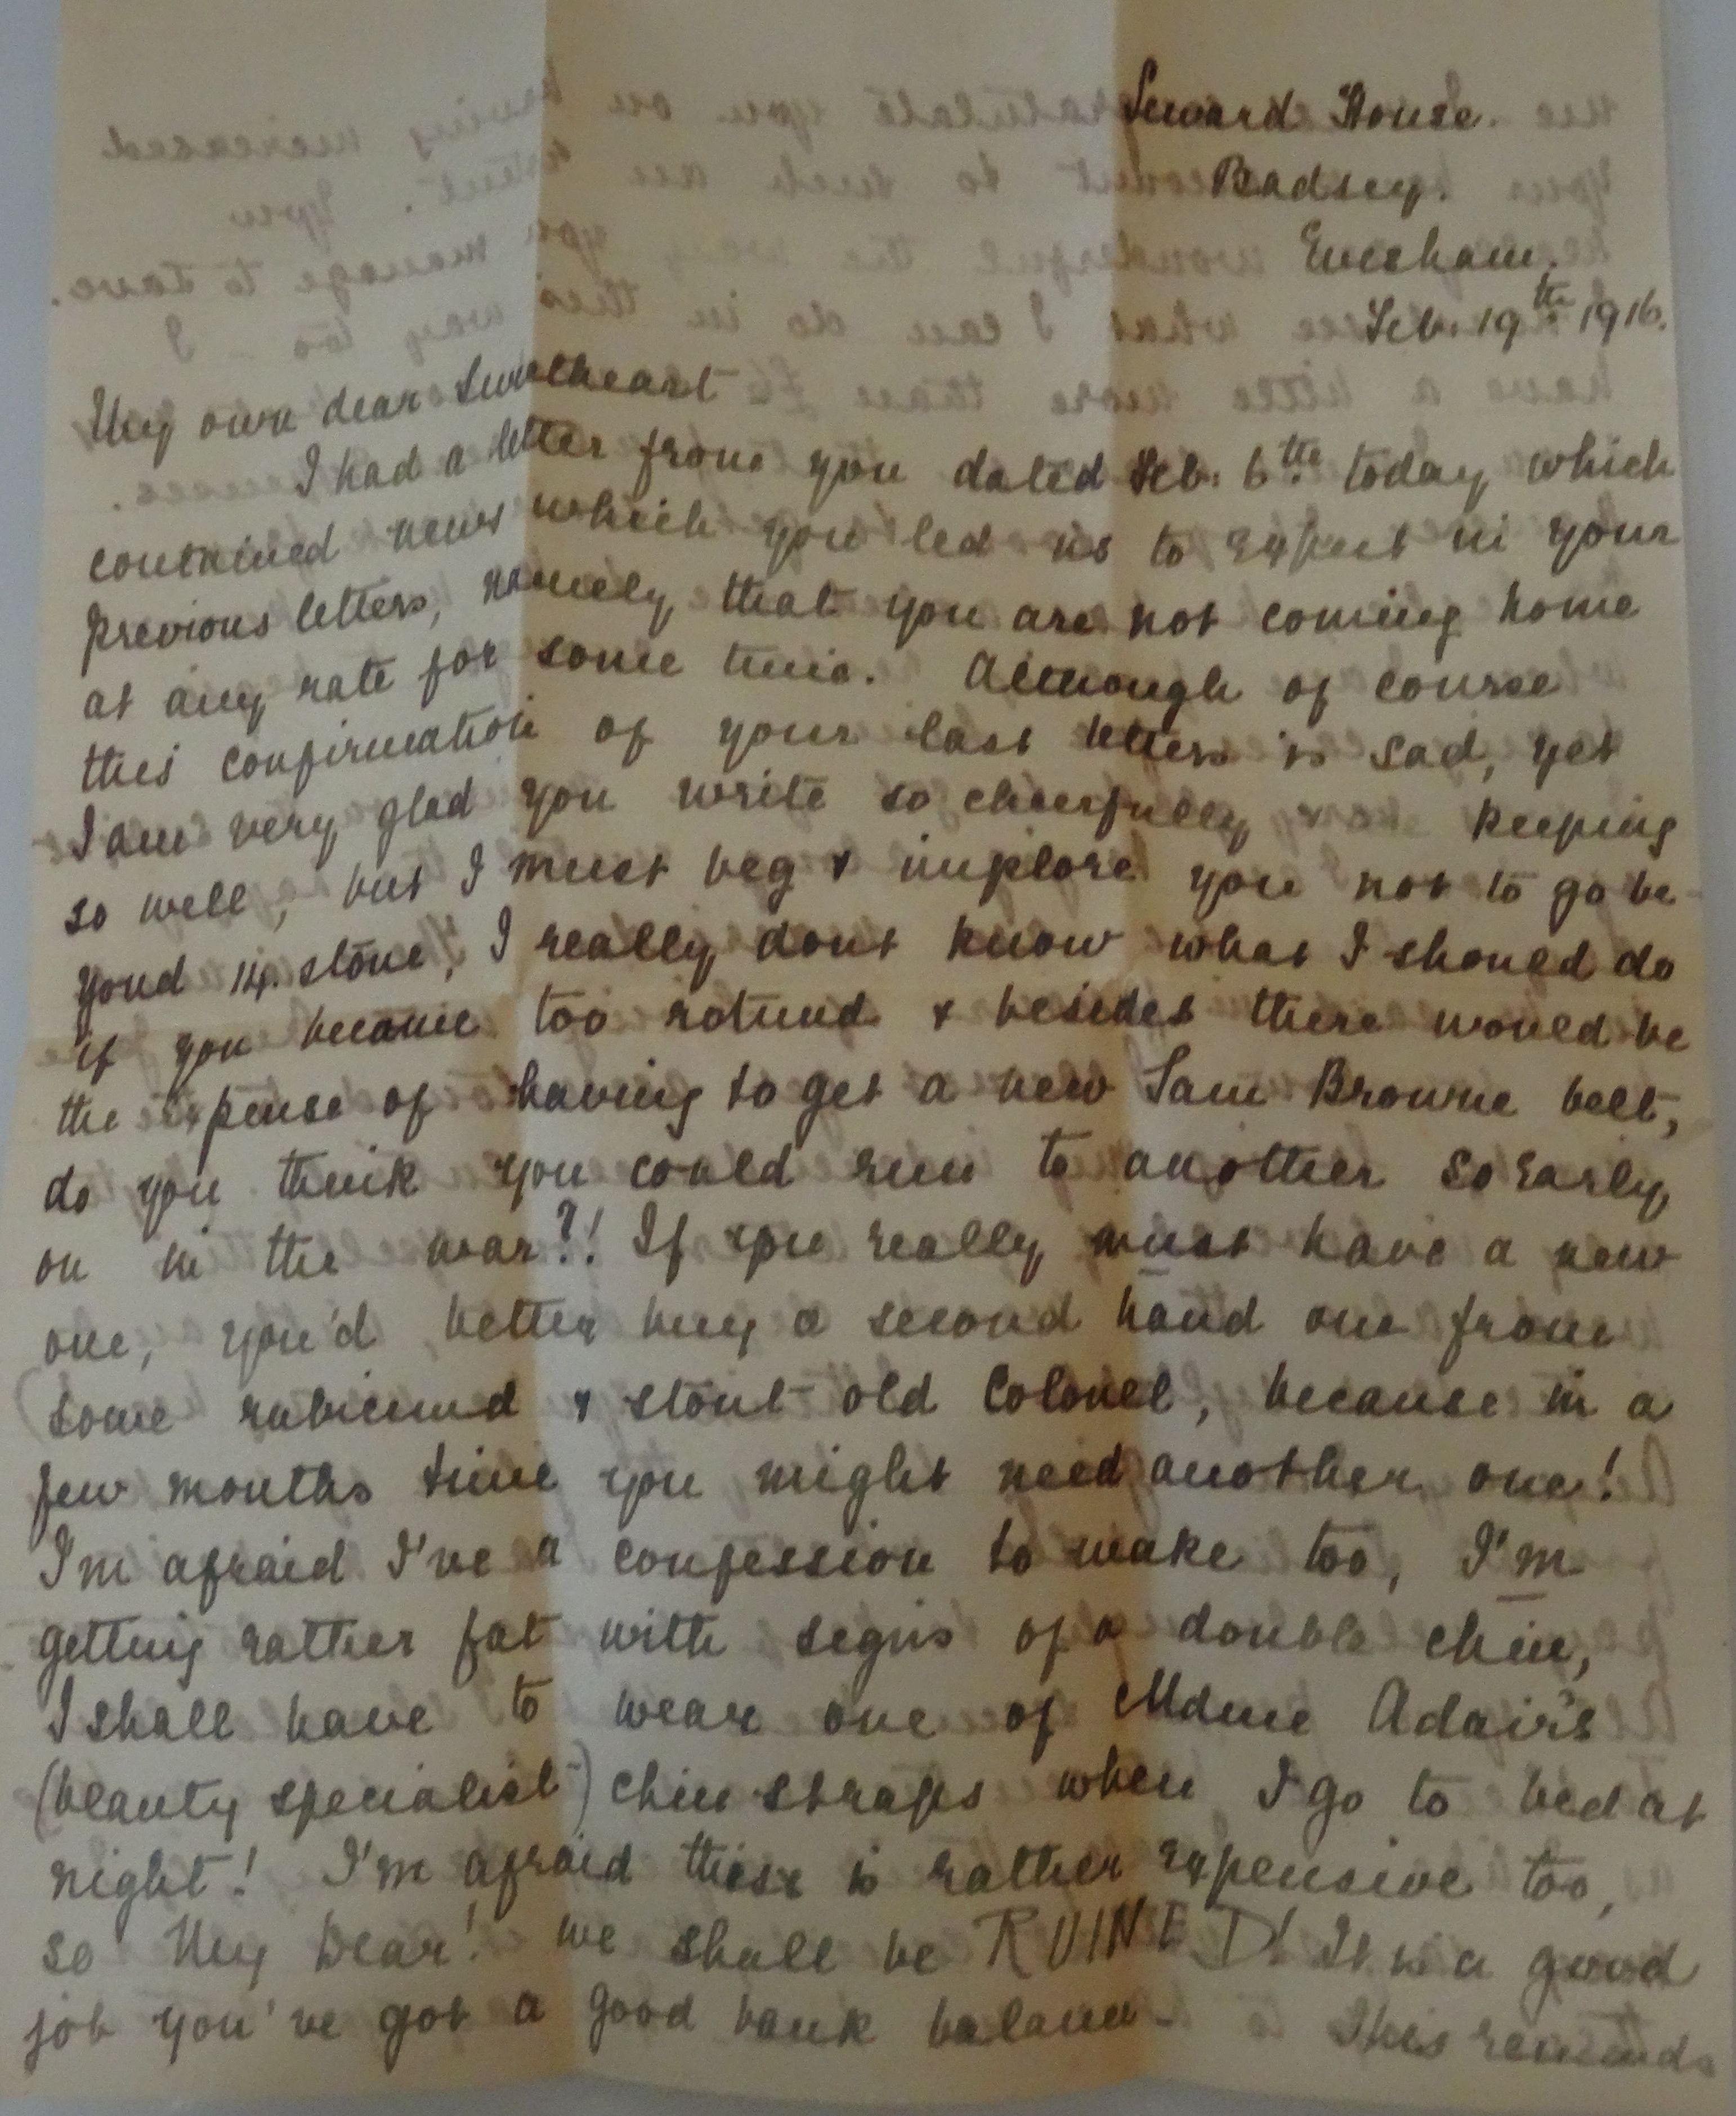 Seward House.
Badsey.
Evesham.
Feb. 19th 1916.
My own dear Sweetheart
I had a letter from you dated Feb. 6th today which
contained news which you led us to expect in your
previous letters, namely that you are not coming home
at any rate for some time. Although of course
this confirmation of your last letters is sad, yet
I am very glad you write so cheerfully & keeping
so well, but I must beg & implore you not to go be-
yond 14. stone, I really dont know what I should do
if you became too rotund & besides there would be
the expense of having to get a new Sam Browne belt,
do you think you could run to another so early
on in the war?! If you really must have a new
one, you'd better buy a second hand one from
some rubicund & stout old Colonel, because in a
few months time you might need another one!
I'm afraid I've a confession to make too, I'm
getting rather fat with signs of a double chin,
I shall have to wear one of Mdme Adair's
(beauty specialist) chin straps when I go to bed at
night! I'm afraid these is rather expensive too,
so My Dear! we shall be RUINED! It is a good
job you've got a good bank balance - This reminds